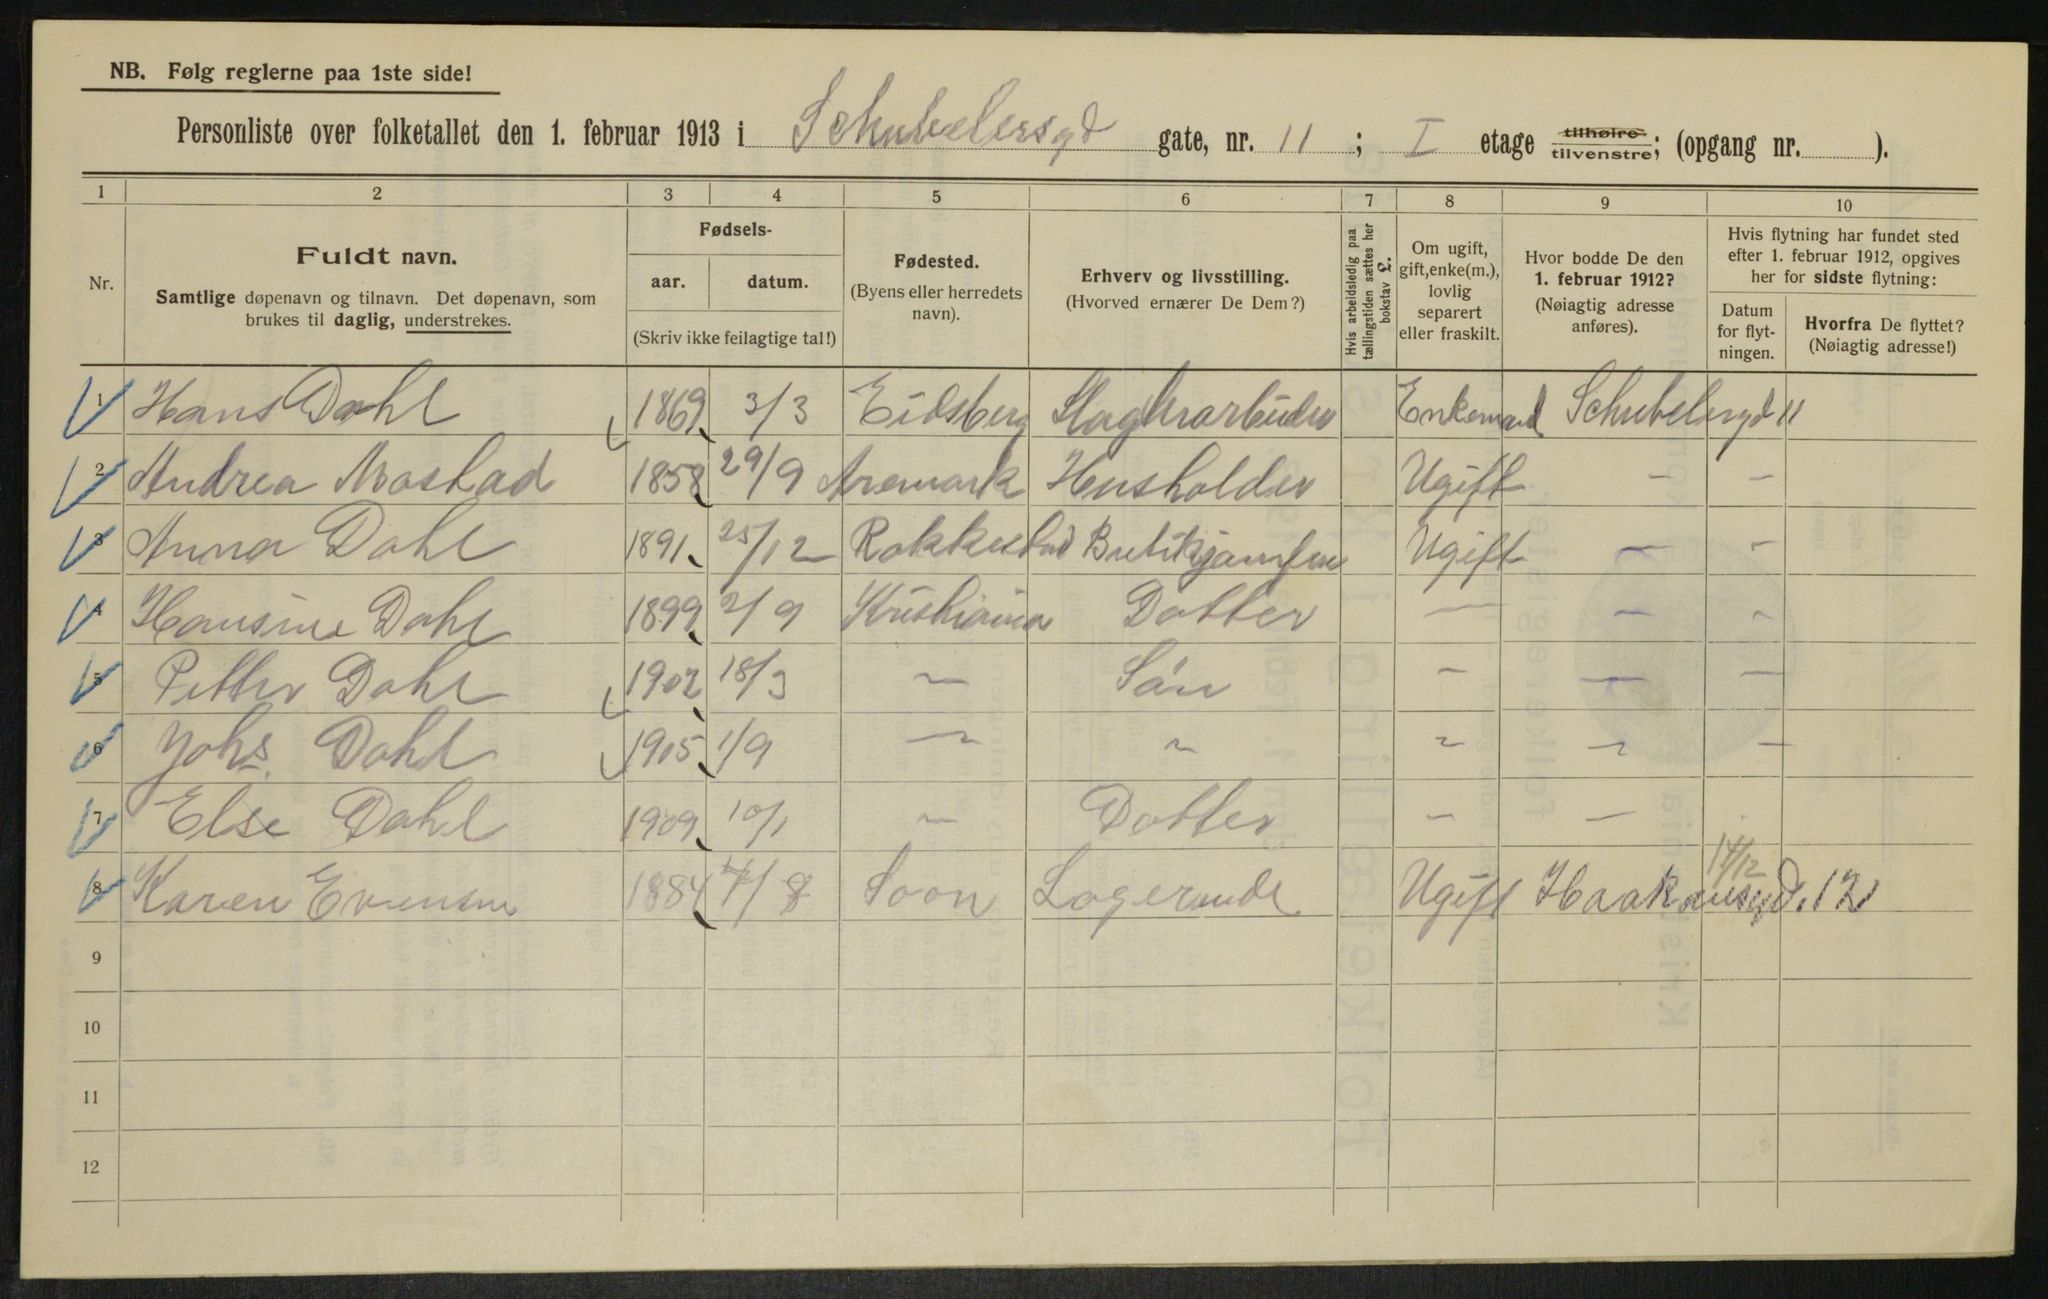 NB. Følg reglerne paa 1ste side!
Personliste over folketallet den 1. februar 1913 i Schubelersgd gate, nr. 11 ; I etage tilhøire tilvenstre; (opgang nr. ).
1 2 3 4 5 6 7 8 9 10
Nr.
Fuldt navn.
Samtlige døpenavn og tilnavn. Det døpenavn, som
brukes til daglig, understrekes.
Fødsels-
aar. datum.
(Skriv ikke feilagtige tal!)
Fødested.
(Byens eller herredets
navn).
Erhverv og livsstilling.
(Hvorved ernærer De Dem?)
Hvis arbeidsledig paa
tællingstiden sættes her
bokstav £.
Om ugift,
gift, enke(m.),
lovlig
separert
eller fraskilt.
Hvor bodde De den
1. februar 1912?
(Nøiagtig adresse
anføres).
Hvis flytning har fundet sted
efter 1. februar 1912, opgives
her for sidste flytning:
Datum
for flyt-
ningen.
Hvorfra De flyttet?
(Nøiagtig adresse!)
1 Hans Dahl 1869 3/3 Eidsberg Enkemand Schubelersgd 11
2 Andrea 1858 29/9 Aremark Husholder Ugift - -
3 Anna Dahl 1891 25/12 Rakkestad Butikjomfru Ugift - -
4 Hansine Dahl 1899 2/9 Kristiania Datter - - -
5 Petter Dahl 1902 18/3 - Sön - - -
6 Johs. Dahl 1905 1/9 - " - - -
7 Else Dahl 1909 10/1 - Datter - -
8 Karen Evensen 1884 /8 Soon Ugift Haakonsgd. 12 14/12
9
10
11
12